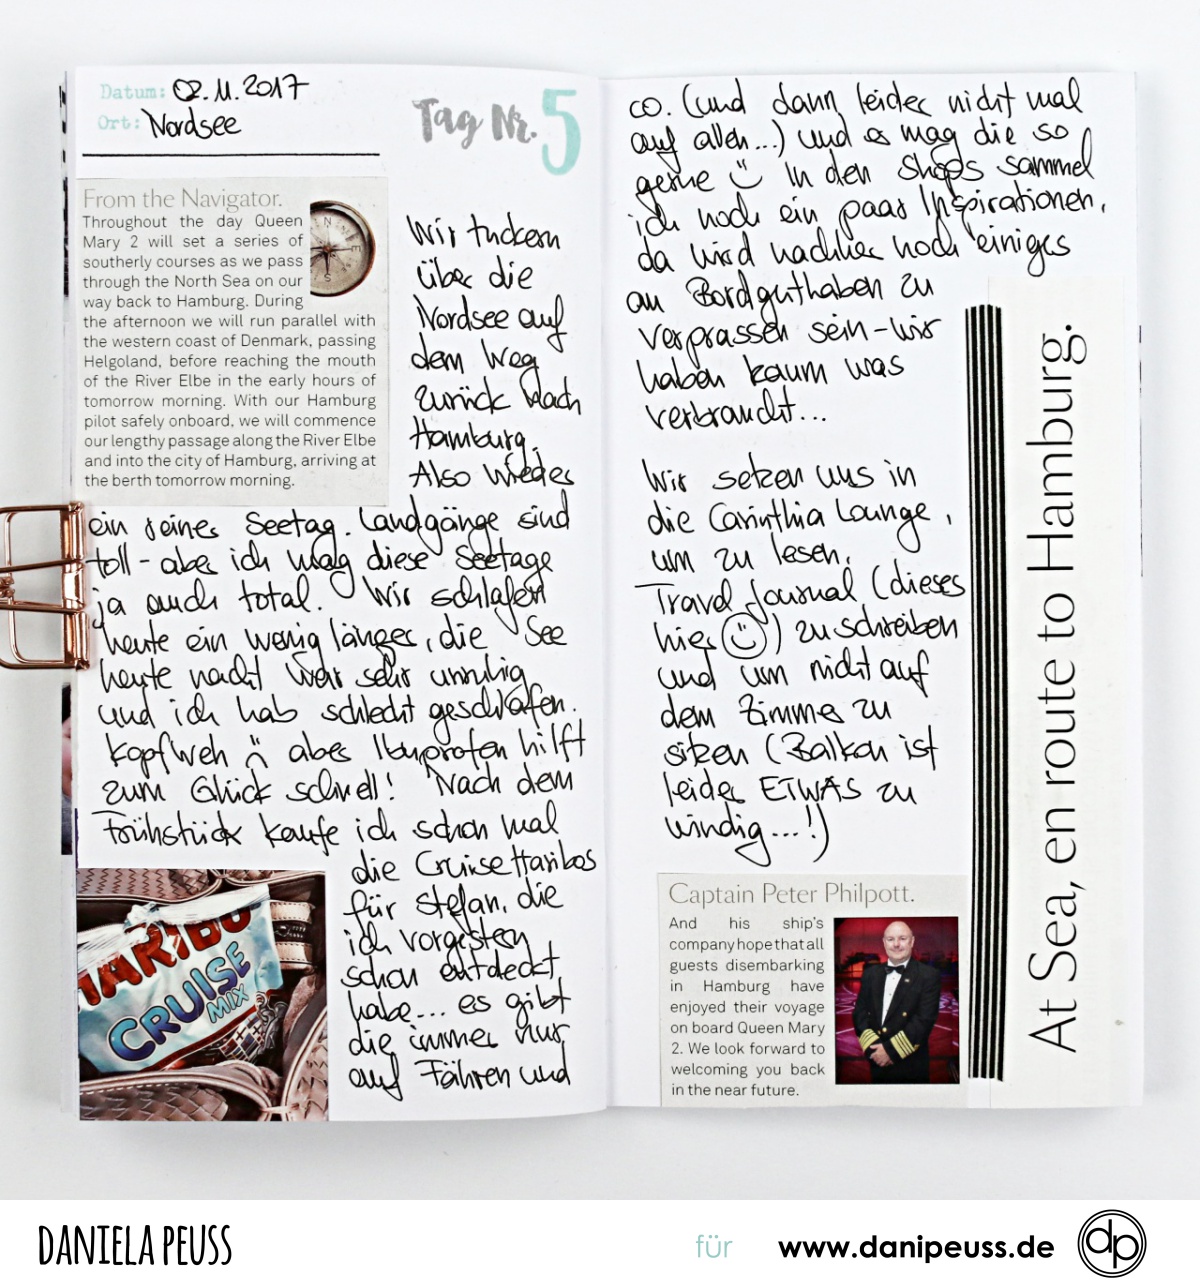 Datum: 02.11.2017
Ort: Nordsee
Tag Nr. 5
From the Navigator.
Throughout the day Queen
Mary 2 will set a series of
southerly courses as we pass
through the North Sea on our
way back to Hamburg. During
the afternoon we will run parallel with
the western coast of Denmark, passing
Helgoland, before reaching the mouth
of the River Elbe in the early hours of
tomorrow morning. With our Hamburg
pilot safely onboard, we will commence
our lengthy passage along the River Elbe
and into the city of Hamburg, arriving at
the berth tomorrow morning.
Wir tuckern
über die
Nordsee auf
dem Weg
zurück nach
Hamburg.
Also wieder
ein feiner Seetag. Landgänge sind
toll - aber ich mag diese Seetage
ja auch total. Wir schlafen
heute ein wenig länger, die See
heute nacht war sehr unruhig
und ich hab schlecht geschlafen.
Kopfweh :( aber Ibuprofen hilft
zum Glück schnell! Nach dem
Frühstück kaufe ich schon mal
die Cruise Haribos
für Stefan, die
ich vorgestern
schon entdeckt
habe... es gibt
die immer nur
auf Fähren und
HARIBO
CRUISE
MIX
co. (und dann leider nicht mal
auf allen...) und er mag die so
gerne :) In den Shops sammel
ich noch ein paar Inspirationen,
da wird nachher noch einiges
an Bordguthaben zu
verprassen sein - wir
haben kaum was
verbraucht...
Wir setzen uns in
die Carinthia Lounge,
um zu lesen,
Travel Journal (dieses
hier :)) zu schreiben
und um nicht auf
dem Zimmer zu
sitzen (Balkon ist
leider ETWAS zu
windig...!)
Captain Peter Philpott.
And his ship's
company hope that all
guests disembarking
in Hamburg have
enjoyed their voyage
on board Queen Mary
2. We look forward to
welcoming you back
in the near future.
At Sea, en route to Hamburg.
DANIELA PEUSS
für www.danipeuss.de
dp